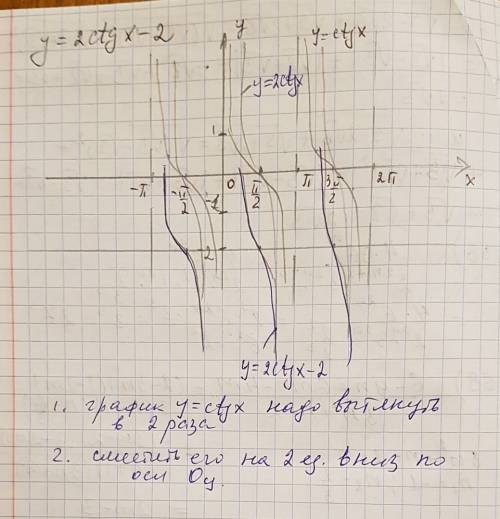 y = 2ctg x - 2
y
y = ctg x
y = 2ctg x
1
-π
-π/2
0
π/2
π
3π/2
2π
x
-1
-2
y = 2ctg x - 2
1. график y = ctg x надо вытянуть
в 2 раза
2. сместить его на 2 ед. вниз по
оси Oy.